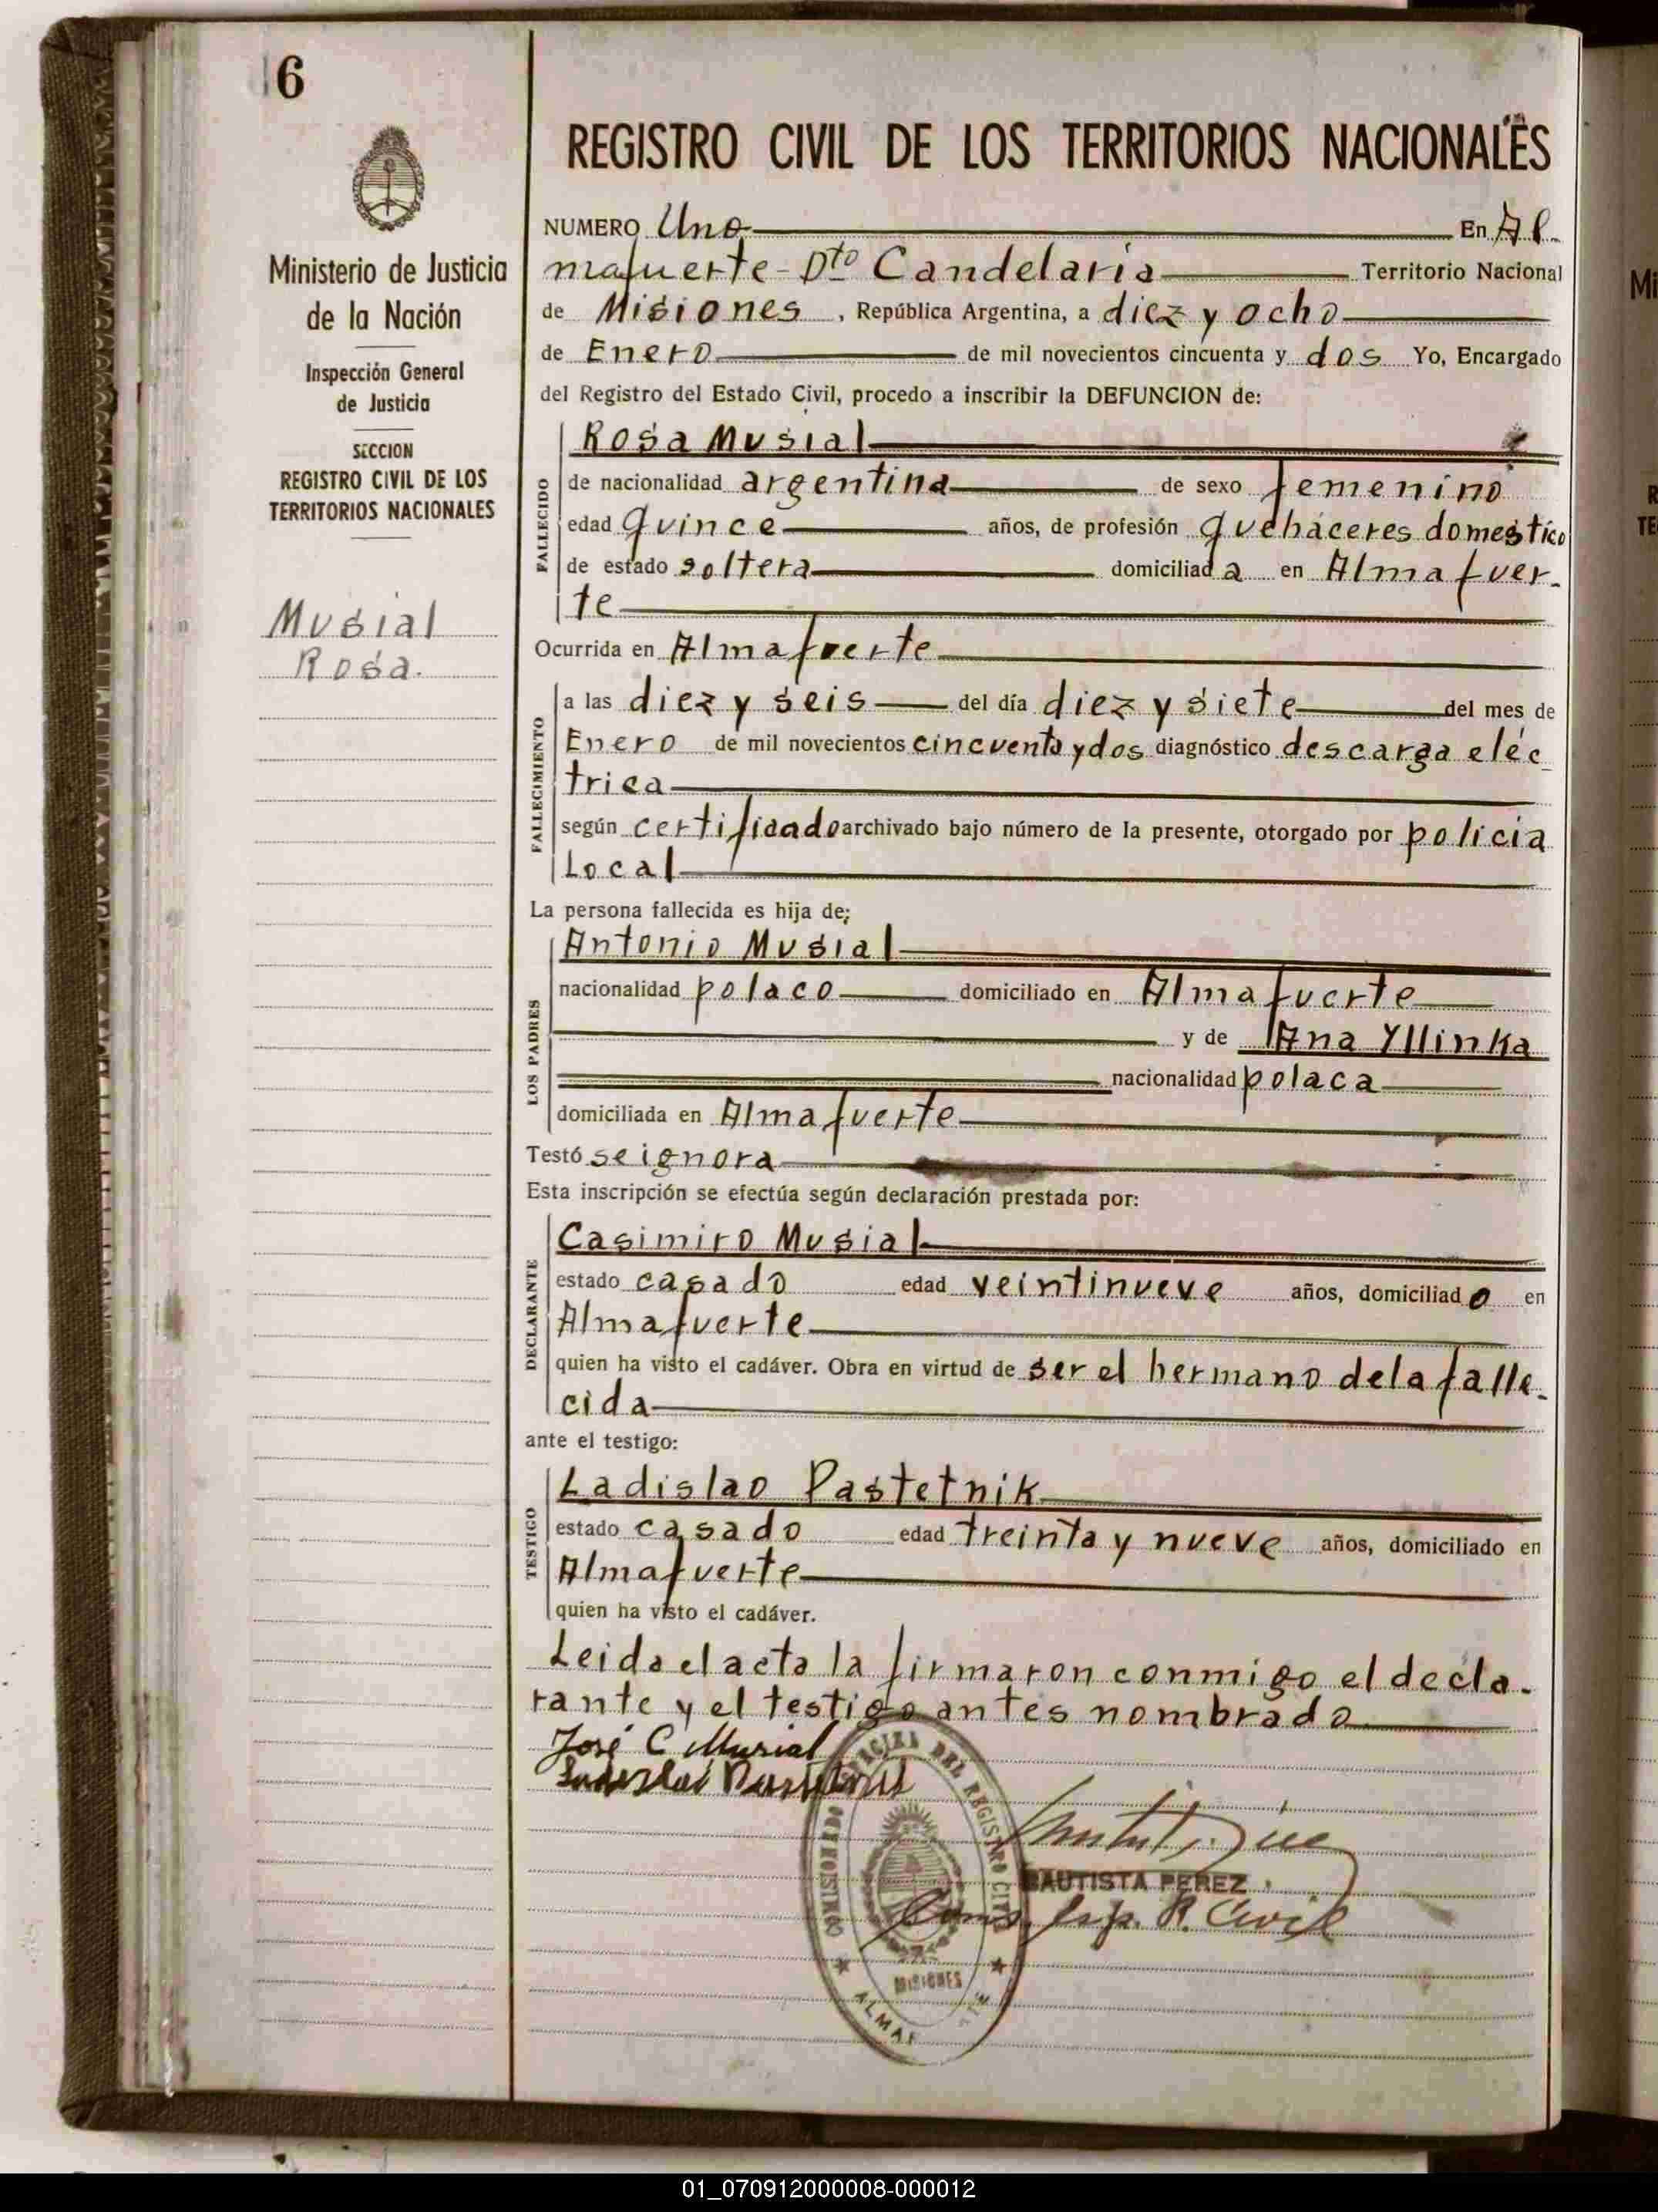 6
Ministerio de Justicia
de la Nación
Inspección General
de Justicia
SECCION
REGISTRO CIVIL DE LOS
TERRITORIOS NACIONALES
Musial
Rosa.
REGISTRO CIVIL DE LOS TERRITORIOS NACIONALES
NUMERO Uno En Al-
mafuerte - Dto Candelaria Territorio Nacional
de Misiones, República Argentina, a diez y ocho
de Enero de mil novecientos cincuenta y dos Yo, Encargado
del Registro del Estado Civil, procedo a inscribir la DEFUNCION de:
FALLECIDO
Rosa Musial
de nacionalidad argentina de sexo femenino
edad quince años, de profesión quehaceres domestico
de estado soltera domiciliada en Almafuer-
te
Ocurrida en Almafuerte
FALLECIMIENTO
a las diez y seis del día diez y siete del mes de
Enero de mil novecientos cincuenta y dos diagnóstico descarga eléc
trica
según certificado archivado bajo número de la presente, otorgado por policia
Local
La persona fallecida es hija de;
LOS PADRES
Antonio Musial
nacionalidad polaco domiciliado en Almafuerte
y de Ana Yllinka
nacionalidad polaca
domiciliada en Almafuerte
Testó se ignora
Esta inscripción se efectúa según declaración prestada por:
DECLARANTE
Casimiro Musial
estado casado edad veintinueve años, domiciliado en
Almafuerte
quien ha visto el cadáver. Obra en virtud de ser el hermano de la falle-
cida
ante el testigo:
TESTIGO
Ladislao Pastetnik
estado casado edad treinta y nueve años, domiciliado en
Almafuerte
quien ha visto el cadáver.
Leida el acta la firmaron conmigo el decla-
rante y el testigo antes nombrado
José C Musial
DEL REGISTRO CIVIL
MISIONES
ALMAF
BAUTISTA PEREZ
R. Civil
01_070912000008-000012